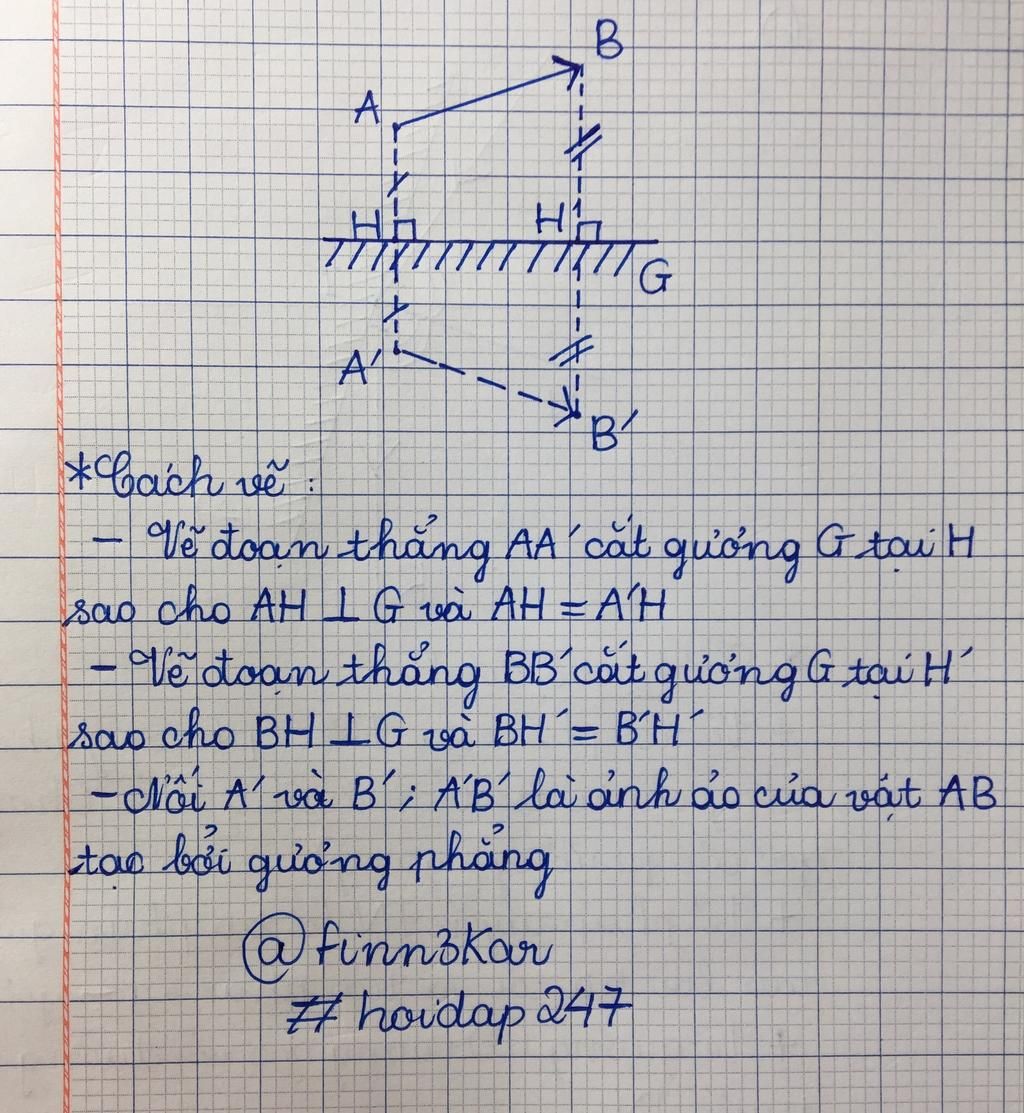 B
A
H H'
G
A'
B'
*Cách vẽ:
- Vẽ đoạn thẳng AA' cắt gương G tại H
sao cho AH ⊥ G và AH = A'H
- Vẽ đoạn thẳng BB' cắt gương G tại H'
sao cho BH ⊥ G và BH' = B'H'
- Nối A' và B'; A'B' là ảnh ảo của vật AB
tạo bởi gương phẳng
@finn3kar
#hoidap247